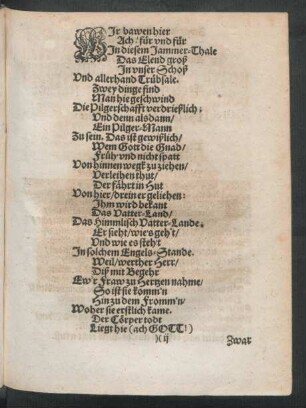 WIr bawen hier
Ach! für vnd für
In diesem Jammer-Thale
Das Elend groß
In vnser Schoß
Vnd allerhand Trübsale.
Zwey dinge sind
Man hie geschwind
Die Pilgerschafft verdrießlich;
Vnd denn alsdann/
Ein Pilger-Mann
Zu sein. Das ist gewißlich/
Wem Gott die Gnad/
Früh vnd nicht spatt
Von hinnen wegk zu ziehen/
Verleihen thut/
Der fährt in Hut
Von hier/ drein er geliehen:
Ihm wird bekant
Das Vatter-Land/
Das Himmlisch Vatter-Lande.
Er sieht/ wie's geh't/
Vnd wie es steh't
In solchem Engels-Stande.
Weil/ werther Herr/
Diß mit Begehr
Ew'r Fraw zu Hertzen nahme/
So ist sie komm'n
Hin zu dem Fromm'n/
Woher sie erstlich kame.
Der Cörper todt
Liegt hie (ach GOTT!)
)( ij
Zwar